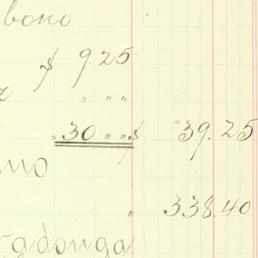 bono
$ 9.25
" " "
" 30 " " $ 39.25
no
" 338.40
gadonga